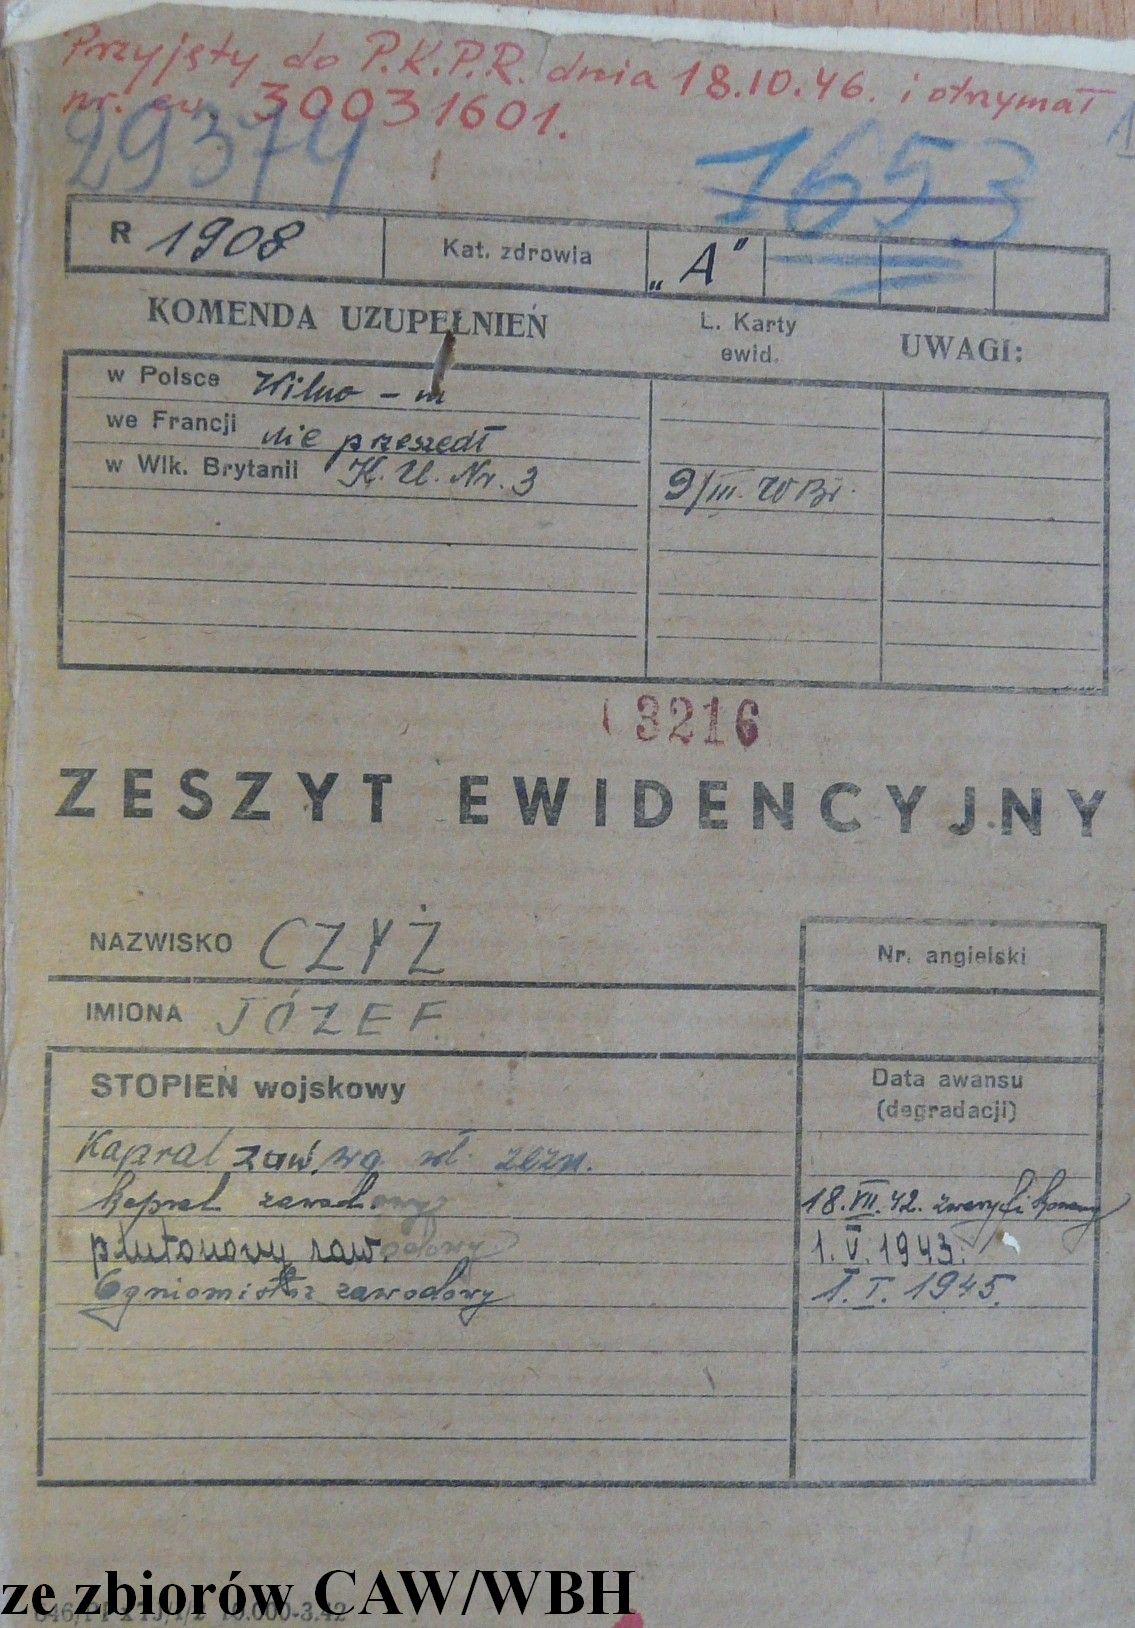 Przyjęty do P.K.P.R. dnia 18.10.46. i otrzymał
nr. ew. 30031601.
29374
1653
R 1908 Kat. zdrowia „A"
KOMENDA UZUPEŁNIEŃ L. Karty ewid. UWAGI:
w Polsce Wilno - m
we Francji nie przeszedł
w Wlk. Brytanii K. U. Nr. 3 9/III. W Br.
3216
ZESZYT EWIDENCYJNY
NAZWISKO CZYŻ Nr. angielski
IMIONA JÓZEF
STOPIEŃ wojskowy Data awansu
(degradacji)
Kapral zaw. wg. wł. zezn.
kapral zawodowy 18.VII.42. zweryfikowany
plutonowy zawodowy 1. V. 1943.
Ogniomistrz zawodowy 1. I. 1945.
ze zbiorów CAW/WBH
10.000-3.42